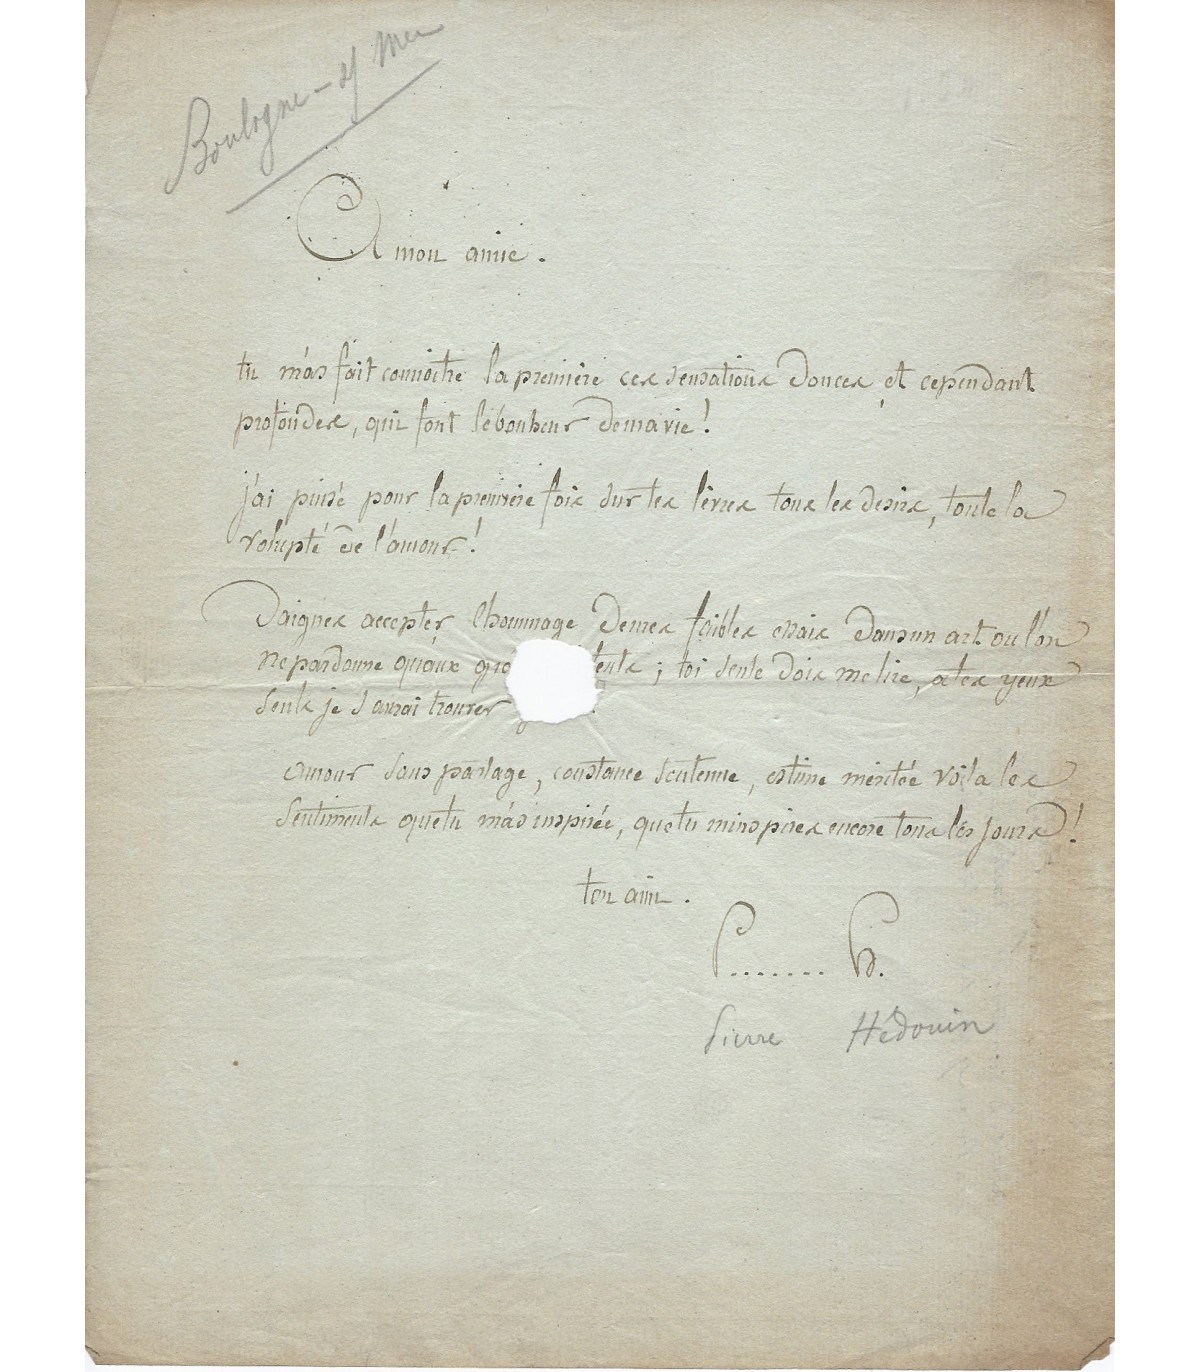 Boulogne-s/ Mer
A mon amie.
tu m'as fait connoître la première ces sensations douces et cependant
profondes, qui font le bonheur de ma vie!
j'ai puisé pour la première fois sur tes lèvres tous les desirs, toute la
volupté de l'amour!
Daignes accepter l'hommage de mes faibles essais dans un art ou l'on
ne pardonne qu'aux; toi seule dois me lire, a tes yeux
seuls je saurai trouver
amour sans partage, constance soutenue, estime méritée voila les
sentiments que tu m'as inspirée, que tu minspires encore tous les jours!
ton ami.
P........ H.
Pierre Hédouin